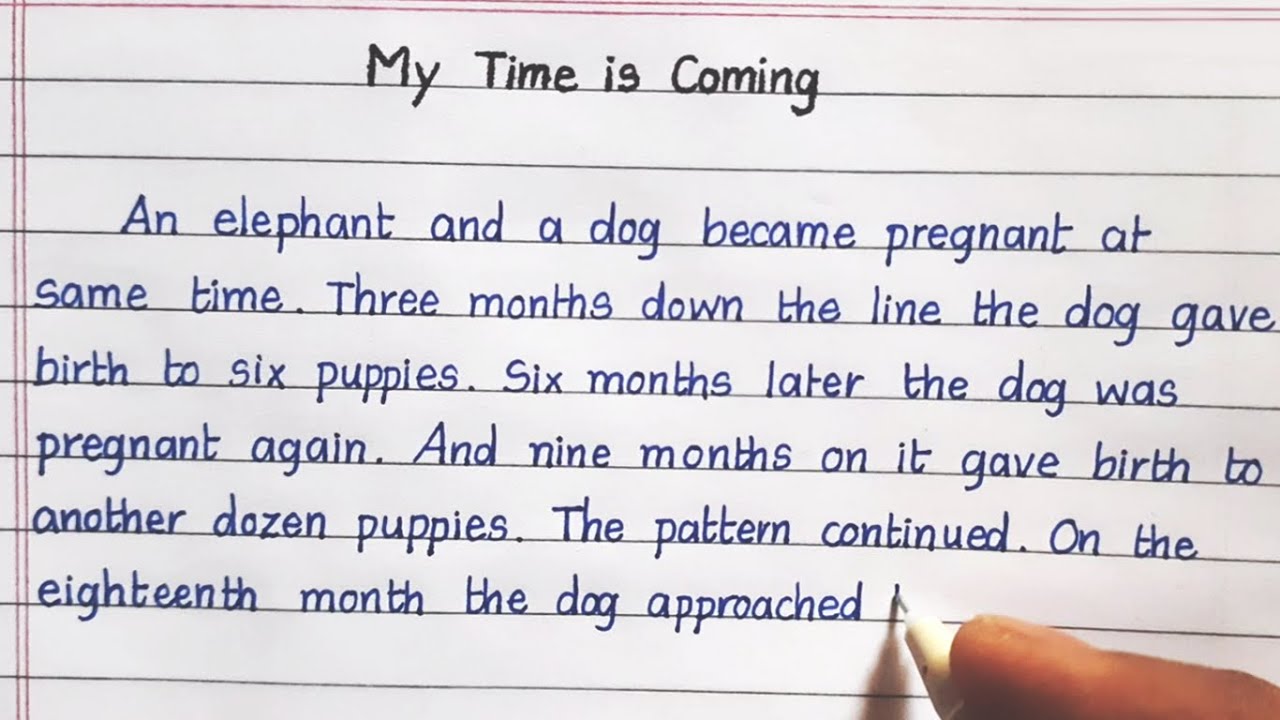 My Time is Coming
An elephant and a dog became pregnant at
same time. Three months down the line the dog gave
birth to six puppies. Six months later the dog was
pregnant again. And nine months on it gave birth to
another dozen puppies. The pattern continued. On the
eighteenth month the dog approached